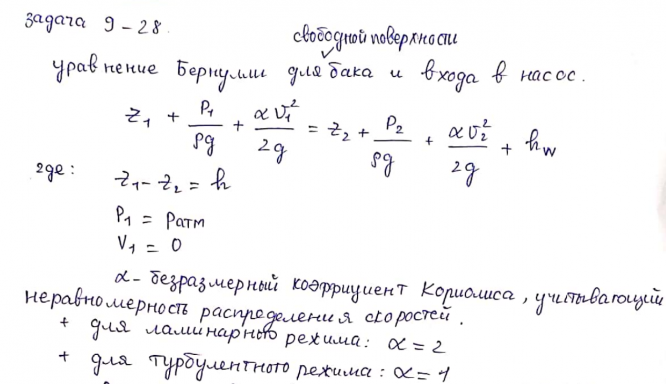 задача 9-28.
свободной поверхности
уравнение Бернулли для бака и входа в насос.
z₁ + P₁/ρg + αV₁²/2g = z₂ + P₂/ρg + αV₂²/2g + h_w
где: z₁ - z₂ = h
P₁ = Pатм
V₁ = 0
α - безразмерный коэффициент Кориолиса, учитывающий
неравномерность распределения скоростей.
+ для ламинарного режима: α = 2
+ для турбулентного режима: α = 1